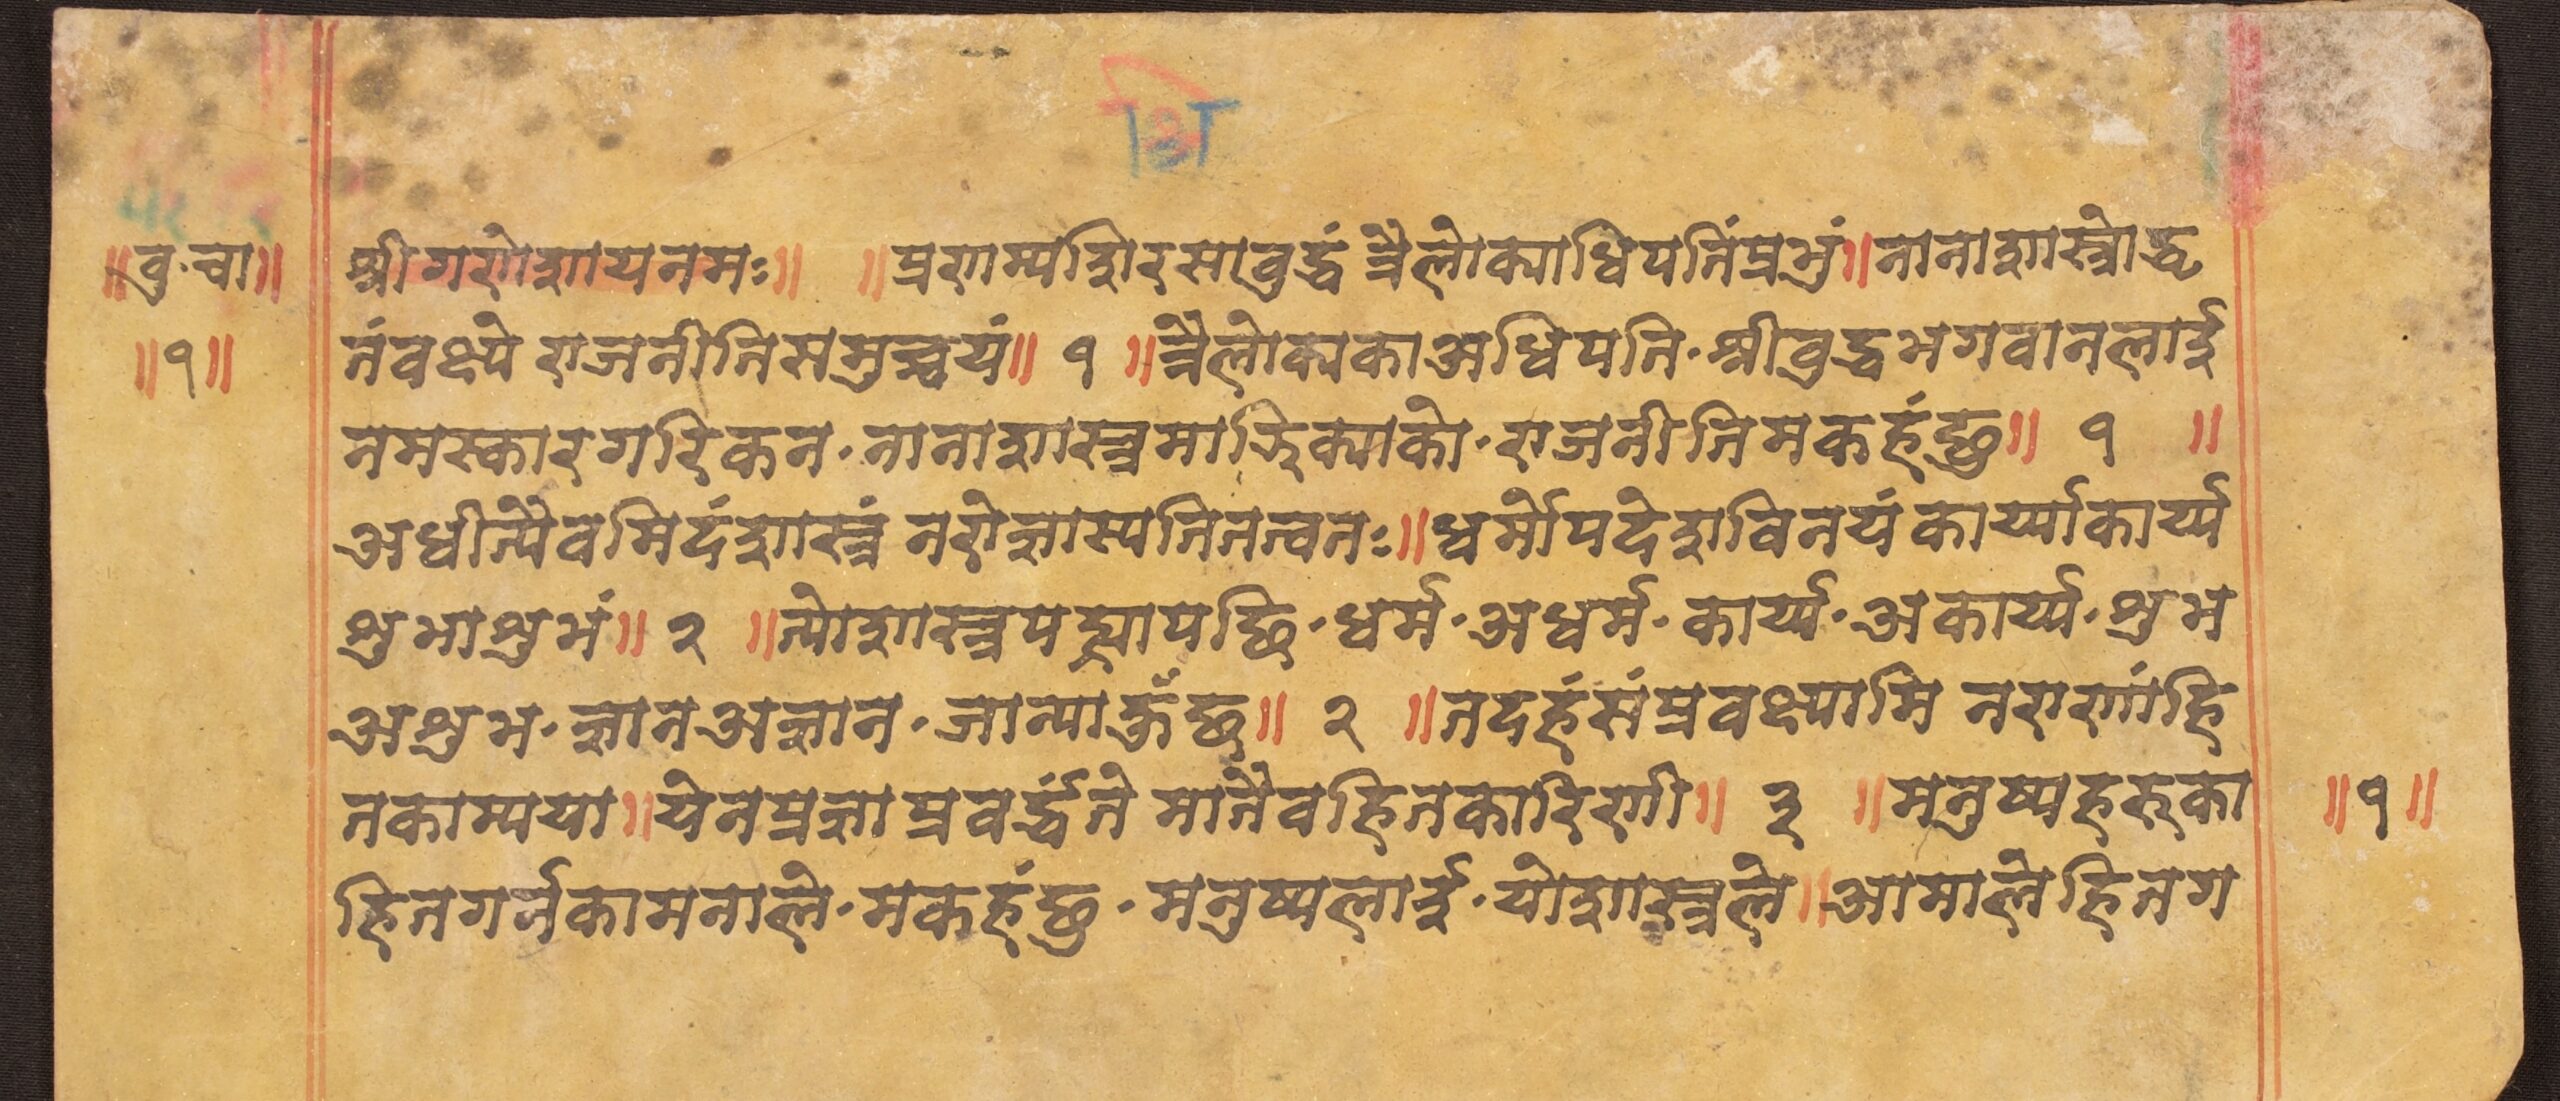 श्रि
॥वु·चा॥ श्रीगणेशायनमः॥ ॥प्रणम्यशिरसावुद्धं त्रैलोक्याधिपतिंप्रभुं॥नानाशास्त्रोद्धृ
॥१॥ तंवक्ष्ये राजनीतिसमुच्चयं॥ १ ॥त्रैलोक्यकाअधिपति·श्रीवुद्धभगवानलाई
नमस्कारगरिकन·नानाशास्त्रमाझिक्याको·राजनीतिमकहंछु॥ १ ॥
अधीत्यैवमिदंशास्त्रं नरोज्ञास्यतितत्वतः॥धर्मोपदेशविनयं कार्य्याकार्य्य
शुभाशुभं॥ २ ॥त्योशास्त्रपढ्यापछि·धर्म·अधर्म·कार्य्य·अकार्य्य·शुभ
अशुभ·ज्ञानअज्ञान·जान्याहुँछ॥ २ ॥तदहंसंप्रवक्ष्यामि नराणांहि
तकाम्यया॥येनप्रज्ञाप्रवर्द्धंते मातैवहितकारिणी॥ ३ ॥मनुष्यहरुका ॥१॥
हितगर्नकामनाले·मकहंछु·मनुष्यलाई·योशास्त्रले॥आमालेहितग